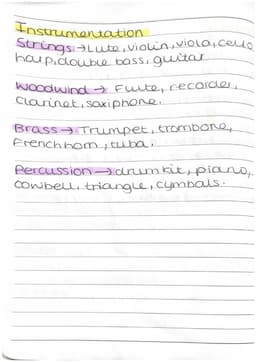 Instrumentation
Strings → Lute, violin, viola, cello
harp, double bass, guitar
Woodwind → Flute, recorder,
Clarinet, saxiphone.
Brass → Trumpet, trombone,
French horn, tuba.
Percussion → drum kit, piano,
cowbell, triangle, cymbals.